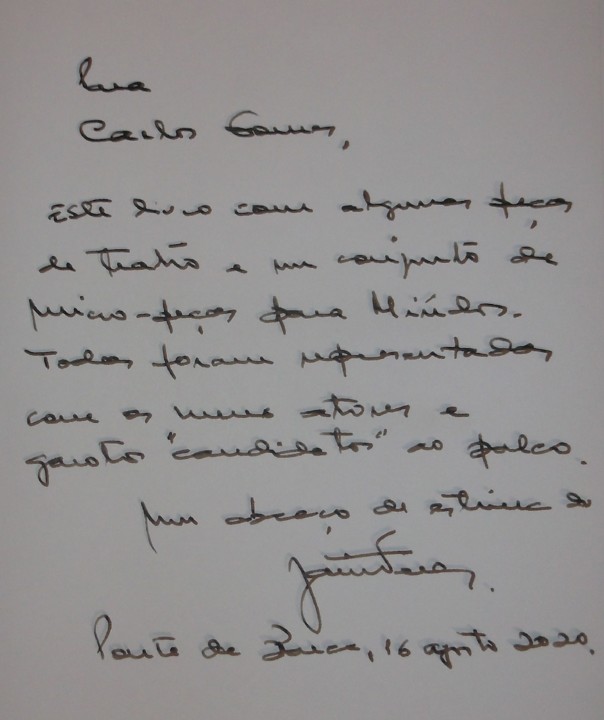 Para
Carlos Gomes,
Este livro com algumas peças
de teatro e um conjunto de
micro-peças para Miúdos.
Todas foram representadas
com os meus atores e
garotos "candidatos" ao palco.
Um abraço de estima do
Ponte de Barca, 16 agosto 2020.